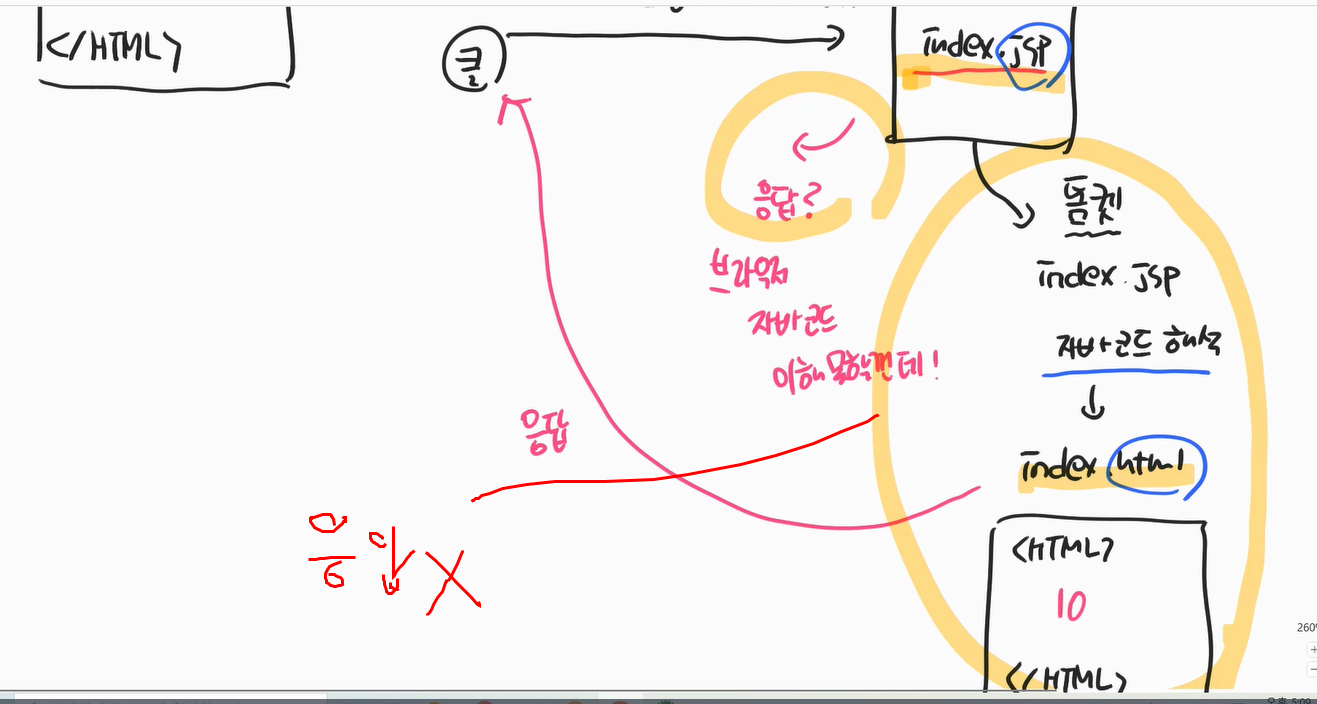 </HTML>
클
index.jsp
응답?
브라우저
자바코드
이해 못할껀데!
톰켓
index.jsp
자바코드 해석
index.html
<HTML>
10
</HTML>
응답
응답X
260%
오후 5:09